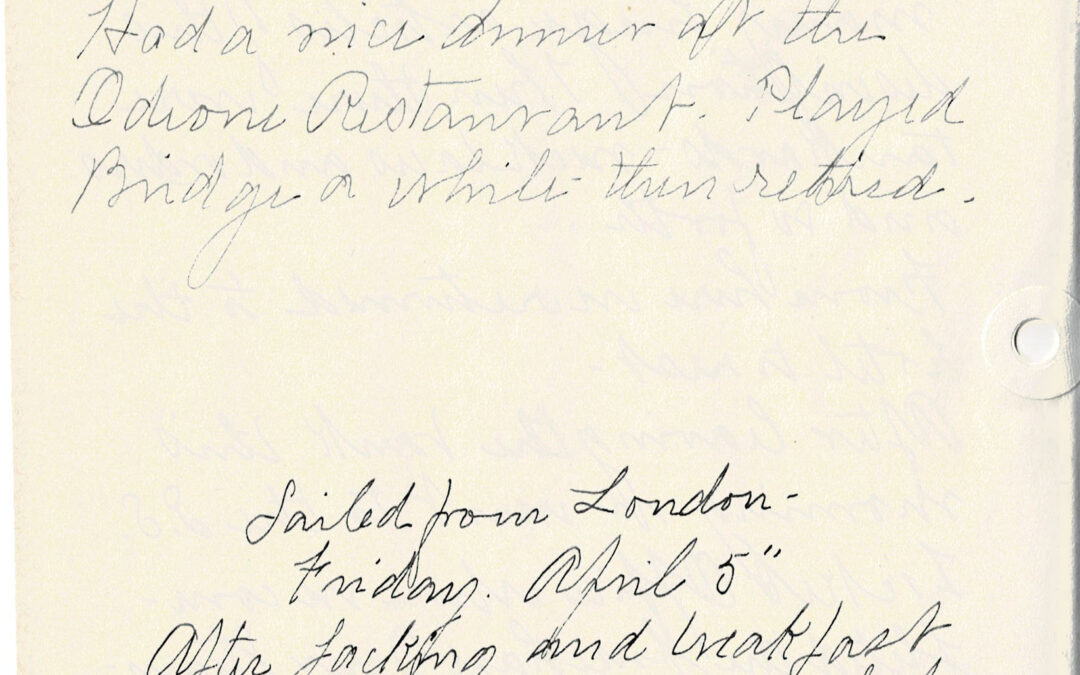 Had a nice dinner at the
Odeone Restaurant. Played
Bridge a while then retired.
Sailed from London-
Friday. April 5"
After packing and breakfast